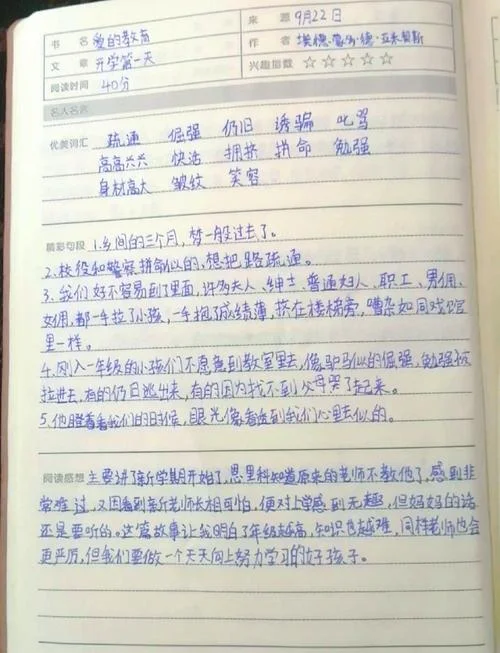 书 名 爱的教育 来 源 9月22日
文 章 开学第一天 作 者 埃德·蒙多·德·亚米契斯
阅读时间 40分 兴趣指数 ☆☆☆☆☆
名人名言
优美词汇 疏通 倔强 仍旧 诱骗 叱骂
高高兴兴 快活 拥挤 拼命 勉强
身材高大 皱纹 笑容
精彩句段 1.乡间的三个月,梦一般过去了。
2.校役和警察拼命似的,想把路疏通。
3.我们好不容易到了里面,许多夫人、绅士、普通妇人、职工、男佣、
女佣,都一手拉了小孩,一手抱了成绩薄,挤在楼梯旁,嘈杂如同戏馆
里一样。
4.刚入一年级的小孩们不愿意到教室里去,像驴马似的倔强,勉强被
拉进去,有的仍旧逃出来,有的因为找不到父母哭了起来。
5.他瞪着看我们的时候,眼光像看透到我们心里去似的。
阅读感想 主要讲了新学期开始了,恩里科知道原来的老师不教他了,感到非
常难过,又因看到新老师长相可怕,便对上学感到无趣,但妈妈的话
还是要听的。这篇故事让我明白了年级越高,知识也越难,同样老师也会
更严厉,但我们要做一个天天向上努力学习的好孩子。